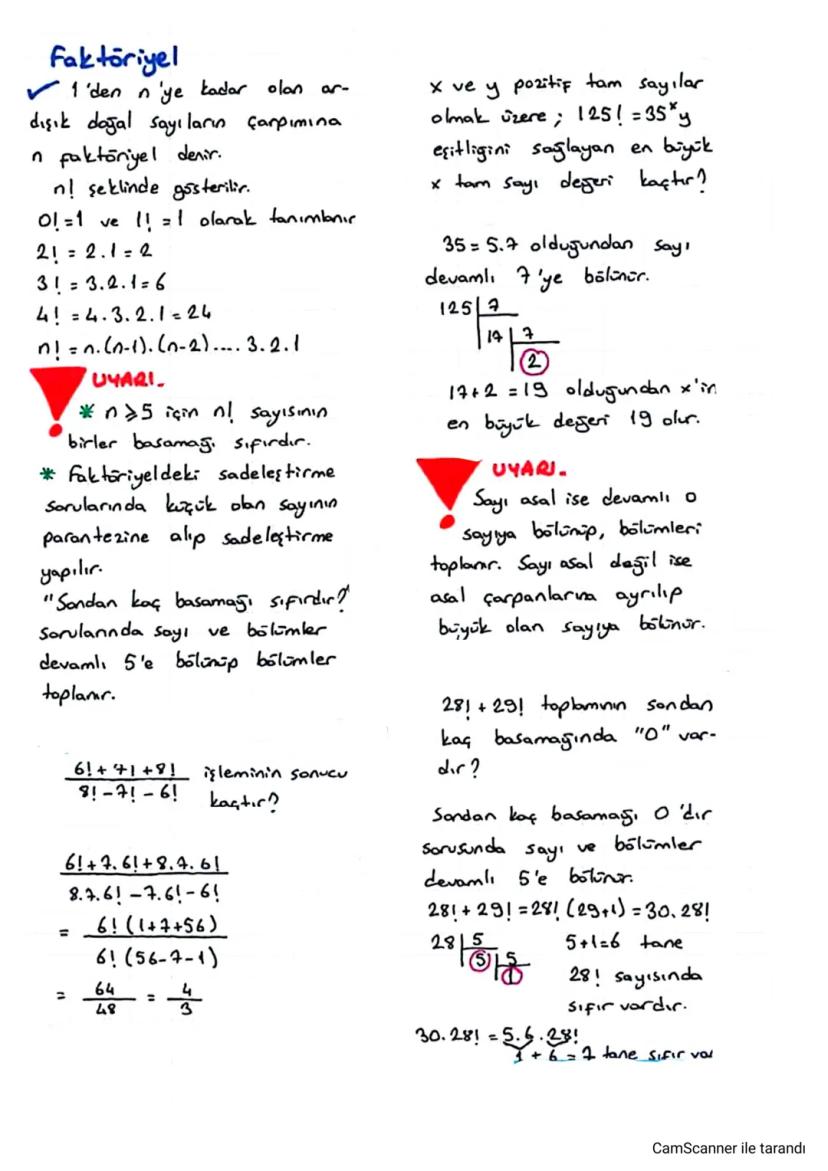 Faktöriyel
✓ 1'den n'ye kadar olan ar-
dışık doğal sayıların çarpımına
n faktöriyel denir.
n! şeklinde gösterilir.
0!=1 ve 1!=1 olarak tanımlanır
2! = 2.1 = 2
3! = 3.2.1 = 6
4! = 4.3.2.1 = 24
n! = n.(n-1).(n-2).... 3.2.1
UYARI.
* n ≥ 5 için n! sayısının
birler basamağı sıfırdır.
* Faktöriyeldeki sadeleştirme
sorularında küçük olan sayının
parantezine alıp sadeleştirme
yapılır.
"Sondan kaç basamağı sıfırdır?"
sorularında sayı ve bölümler
devamlı 5'e bölünüp bölümler
toplanır.
6!+7!+8! / 8!-7!-6! işleminin sonucu
kaçtır?
6!+7.6!+8.7.6!
8.7.6!-7.6!-6!
= 6!(1+7+56)
6!(56-7-1)
= 64/48 = 4/3
x ve y pozitif tam sayılar
olmak üzere; 125! = 35^x y
eşitliğini sağlayan en büyük
x tam sayı değeri kaçtır?
35 = 5.7 olduğundan sayı
devamlı 7'ye bölünür.
125 | 7
17 | 7
2
17+2 = 19 olduğundan x'in
en büyük değeri 19 olur.
UYARI.
Sayı asal ise devamlı o
sayıya bölünüp, bölümleri
toplanır. Sayı asal değil ise
asal çarpanlarına ayrılıp
büyük olan sayıya bölünür.
28! + 29! toplamının sondan
kaç basamağında "0" var-
dır?
Sondan kaç basamağı 0'dır
sorusunda sayı ve bölümler
devamlı 5'e bölünür.
28! + 29! = 28! (29+1) = 30.28!
28 | 5 5+1=6 tane
5 | 5 28! sayısında
1 sıfır vardır.
30.28! = 5.6.28!
1 + 6 = 7 tane sıfır var
CamScanner ile tarandı